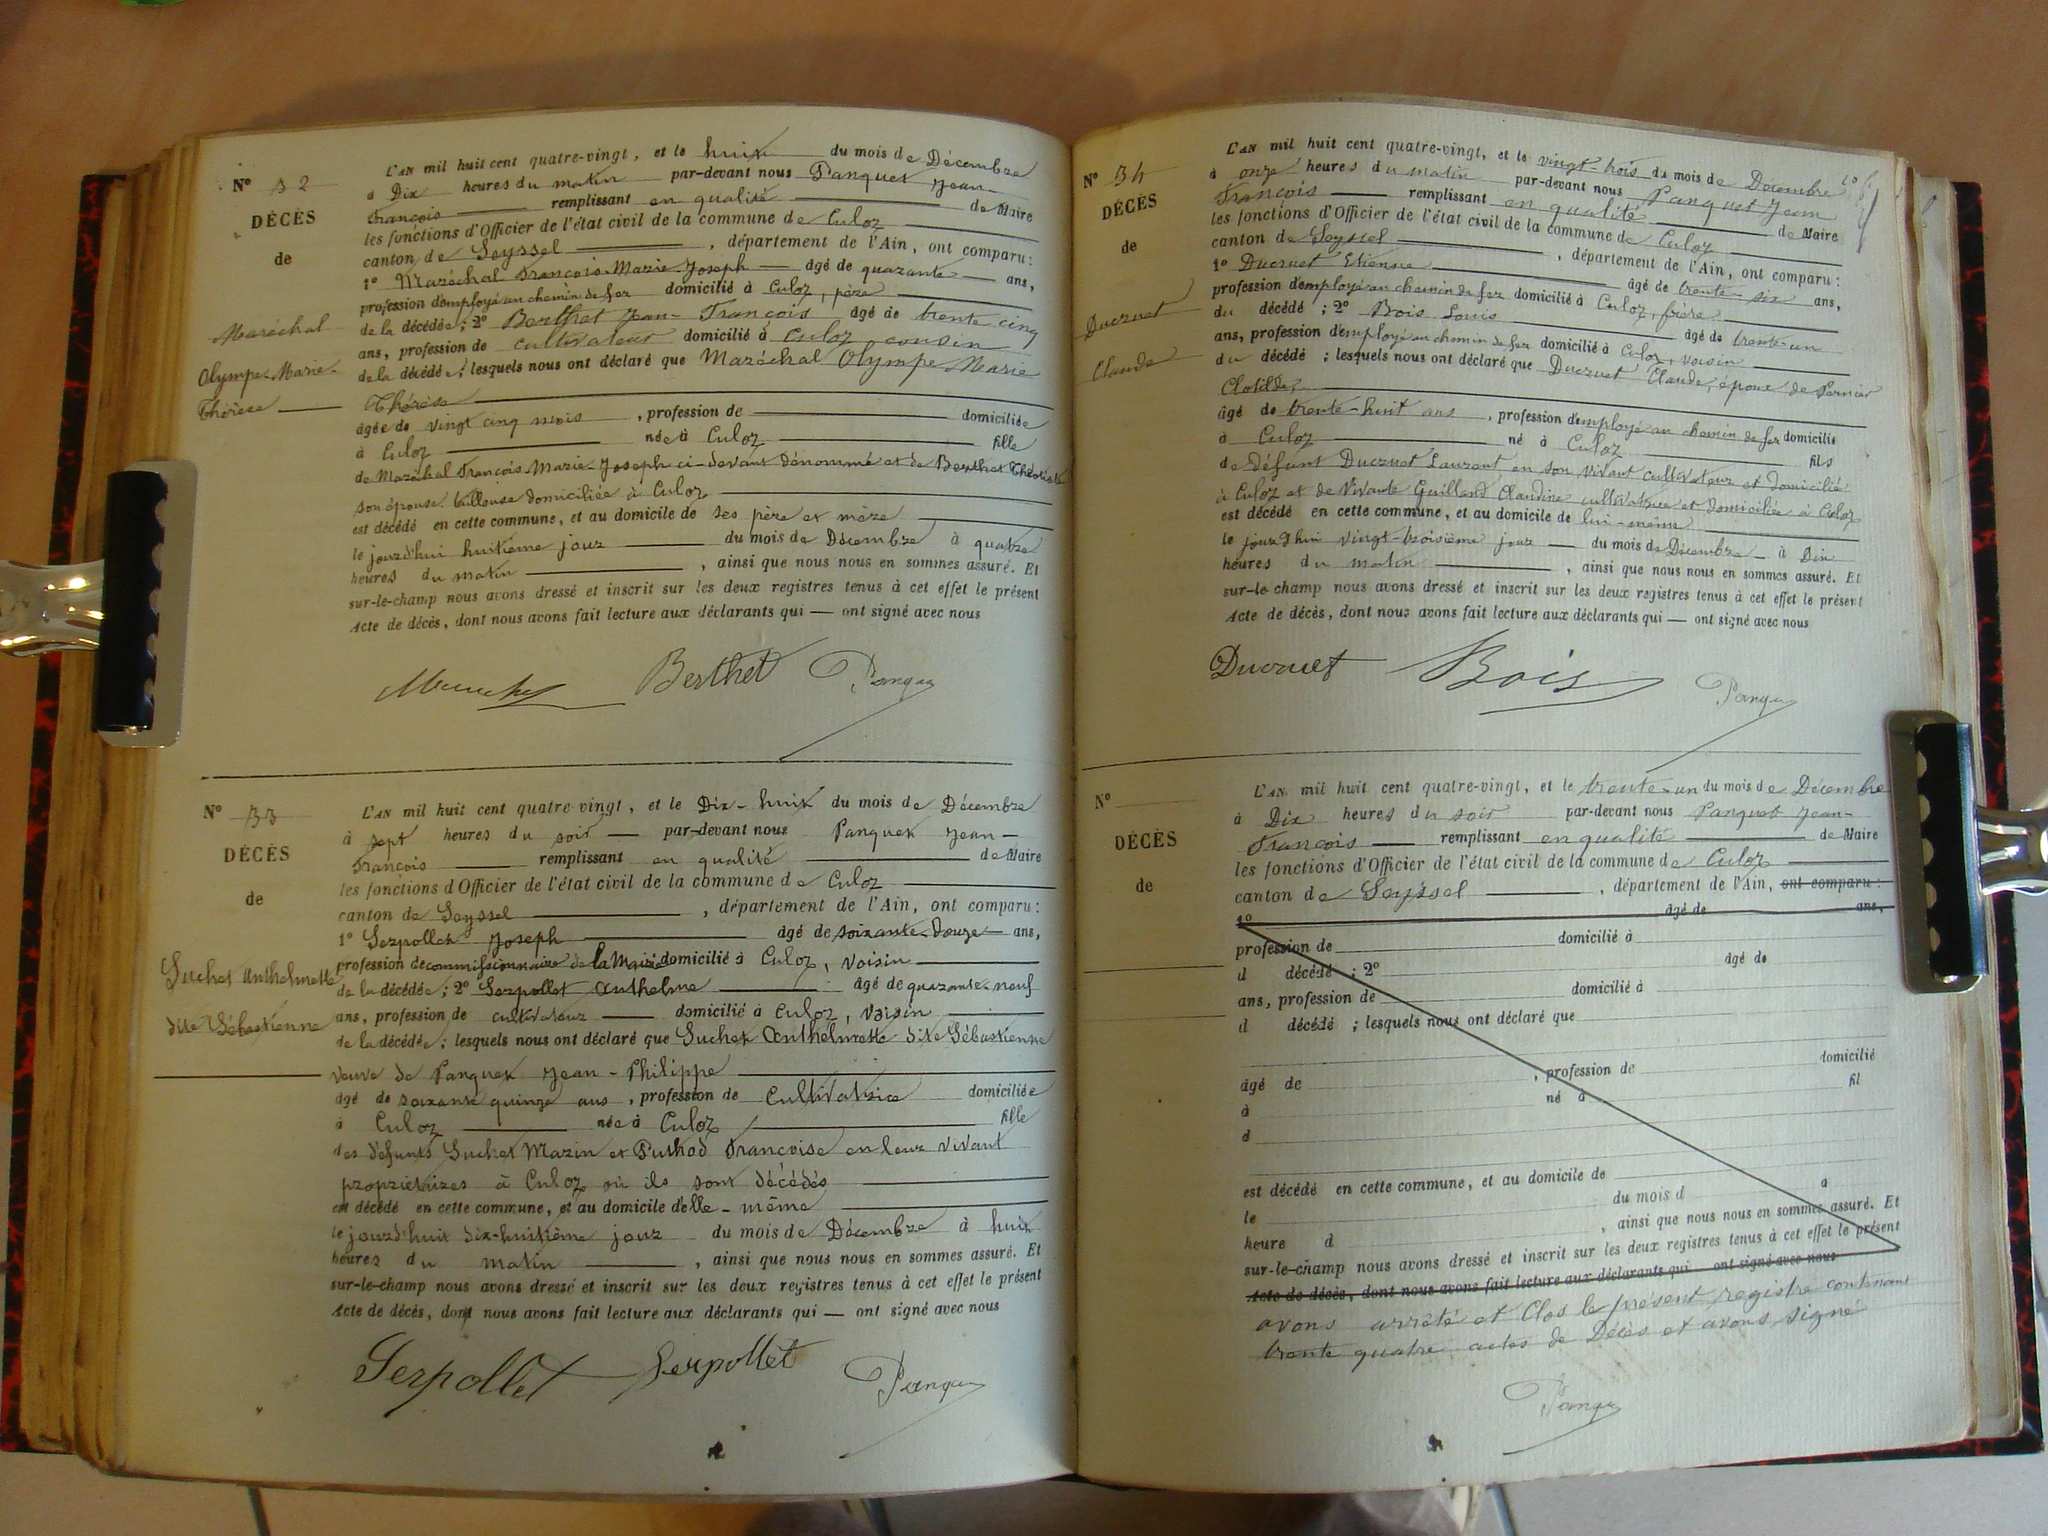 N° 32
DÉCÈS
de
Maréchal
Olympe-Marie-
Thérèse
L'AN mil huit cent quatre-vingt, et le huit du mois de Décembre
à Dix heures du matin par-devant nous Panquet Jean-
François remplissant en qualité de Maire
les fonctions d'Officier de l'état civil de la commune de Culoz
canton de Seyssel, département de l'Ain, ont comparu :
1° Maréchal François-Marie-Joseph âgé de quarante ans,
profession d'employé au chemin de fer domicilié à Culoz, père
de la décédée ; 2° Berthet Jean-François âgé de trente cinq
ans, profession de cultivateur domicilié à Culoz cousin
de la décédée ; lesquels nous ont déclaré que Maréchal Olympe Marie
Thérèse
âgée de vingt cinq mois, profession de domiciliée
à Culoz née à Culoz fille
de Maréchal François-Marie-Joseph ci-devant dénommé et de Berthet
son épouse domiciliée à Culoz
est décédé en cette commune, et au domicile de ses père et mère
le jourd'hui huitième jour du mois de Décembre à quatre
heures du matin, ainsi que nous nous en sommes assuré. Et
sur-le-champ nous avons dressé et inscrit sur les deux registres tenus à cet effet le présent
Acte de décès, dont nous avons fait lecture aux déclarants qui — ont signé avec nous
Berthet Panquet
N° 33
DÉCÈS
de
Suchet Anthelmette
dite Sébastienne
L'AN mil huit cent quatre-vingt, et le Dix-huit du mois de Décembre
à sept heures du soir par-devant nous Panquet Jean-
François remplissant en qualité de Maire
les fonctions d'Officier de l'état civil de la commune de Culoz
canton de Seyssel, département de l'Ain, ont comparu :
1° Serpollet Joseph âgé de soixante-douze ans,
profession de commissionnaire de la Mairie domicilié à Culoz, voisin
de la décédée ; 2° Serpollet Anthelme âgé de quarante-neuf
ans, profession de cultivateur domicilié à Culoz, voisin
de la décédée ; lesquels nous ont déclaré que Suchet Anthelmette dite Sébastienne
veuve de Panquet Jean-Philippe
âgé de soixante quinze ans, profession de Cultivatrice domiciliée
à Culoz née à Culoz fille
des défunts Suchet Marin et Puthod Françoise en leur vivant
propriétaires à Culoz où ils sont décédés
est décédé en cette commune, et au domicile d'elle-même
le jourd'huit dix-huitième jour du mois de Décembre à huit
heures du matin, ainsi que nous nous en sommes assuré. Et
sur-le-champ nous avons dressé et inscrit sur les deux registres tenus à cet effet le présent
Acte de décès, dont nous avons fait lecture aux déclarants qui — ont signé avec nous
Serpollet Serpollet Panquet
N° 34
DÉCÈS
de
Ducruet
Claude
L'AN mil huit cent quatre-vingt, et le vingt-trois du mois de Décembre
à onze heures du matin par-devant nous Panquet Jean
François remplissant en qualité de Maire
les fonctions d'Officier de l'état civil de la commune de Culoz
canton de Seyssel, département de l'Ain, ont comparu :
1° Ducruet Etienne âgé de trente-six ans,
profession d'employé au chemin de fer domicilié à Culoz, frère
du décédé ; 2° Bois Louis âgé de trente-un
ans, profession d'employé au chemin de fer domicilié à Culoz, voisin
du décédé ; lesquels nous ont déclaré que Ducruet Claude, époux de Pernier
Clotilde,
âgé de trente-huit ans, profession d'employé au chemin de fer domicilié
à Culoz né à Culoz fils
de défunt Ducruet Laurent, en son vivant cultivateur et domicilié
à Culoz et de vivante Guilland Claudine cultivatrice et domiciliée à Culoz
est décédé en cette commune, et au domicile de lui-même
le jourd'hui vingt-troisième jour du mois de Décembre à Dix
heures du matin, ainsi que nous nous en sommes assuré. Et
sur-le-champ nous avons dressé et inscrit sur les deux registres tenus à cet effet le présent
Acte de décès, dont nous avons fait lecture aux déclarants qui — ont signé avec nous
Ducruet Bois Panquet
N°
DÉCÈS
de
L'AN mil huit cent quatre-vingt, et le trente-un du mois de Décembre
à Dix heures du soir par-devant nous Panquet Jean-
François remplissant en qualité de Maire
les fonctions d'Officier de l'état civil de la commune de Culoz
canton de Seyssel, département de l'Ain, ont comparu :
1° âgé de ans,
profession de domicilié à
d décédé ; 2° âgé de
ans, profession de domicilié à
d décédé ; lesquels nous ont déclaré que
âgé de, profession de domicilié
à né à fil
d
est décédé en cette commune, et au domicile de
le du mois d à
heure d, ainsi que nous nous en sommes assuré. Et
sur-le-champ nous avons dressé et inscrit sur les deux registres tenus à cet effet le présent
Acte de décès, dont nous avons fait lecture aux déclarants qui ont signé avec nous
avons arrêté et Clos le présent registre contenant
trente quatre actes de Décès et avons signé
Panquet